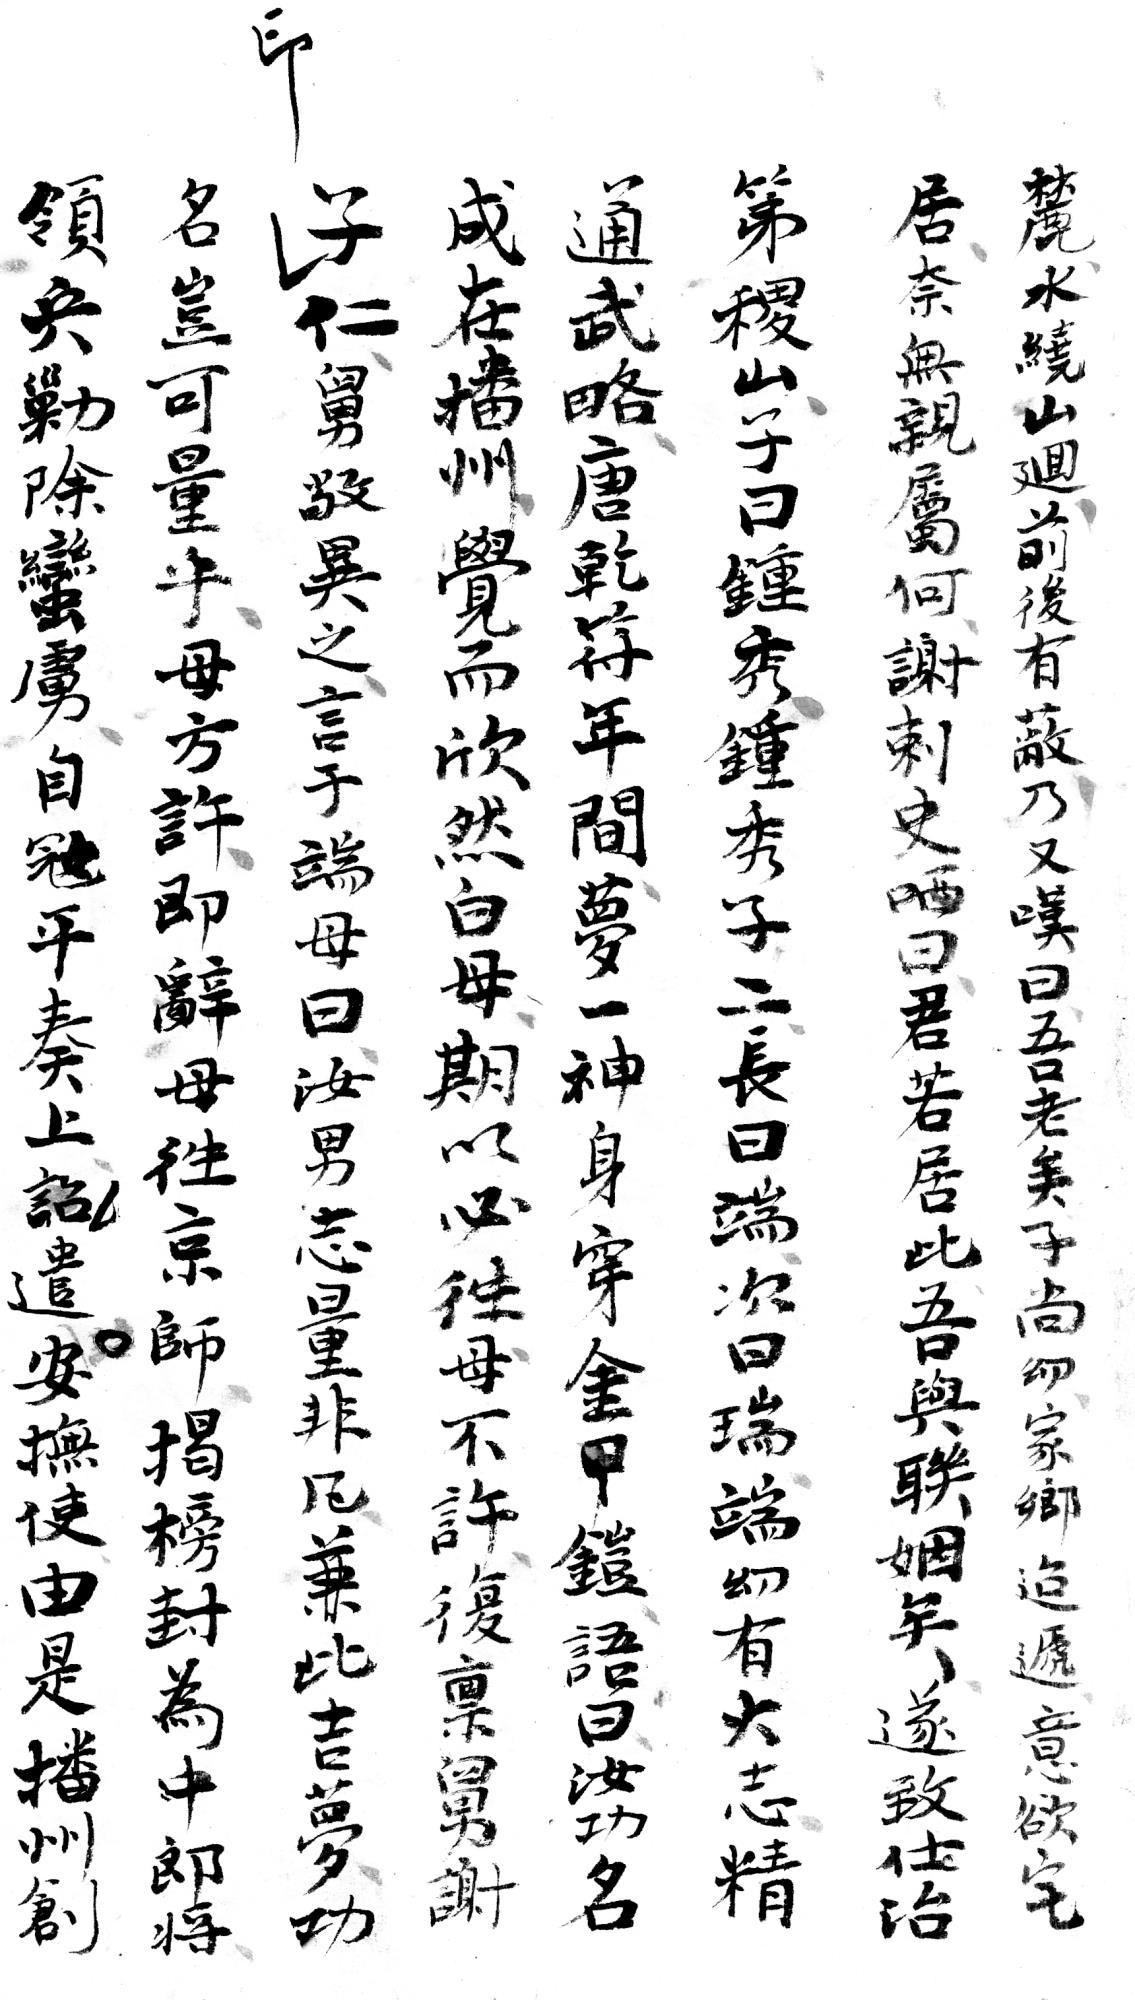 麓水繞山廻前後有蔽乃又嘆曰吾老矣子尚幼家鄉迢遞意欲宅
居奈無親屬何謝刺史哂曰君若居此吾與聯姻矣遂致仕治
第稷山子曰鍾秀鍾秀子二長曰端次曰瑞端幼有大志精
通武略唐乾符年間夢一神身穿金甲鎧語曰汝功名
成在播州覺而欣然白母期以必往母不許復稟舅謝
印
子仁舅敬異之言于端母曰汝男志量非凡兼此吉夢功
名豈可量乎母方許即辭母往京師揭榜封為中郎将
領兵勦除蠻虜自冠平奏上詔遣安撫使由是播州創